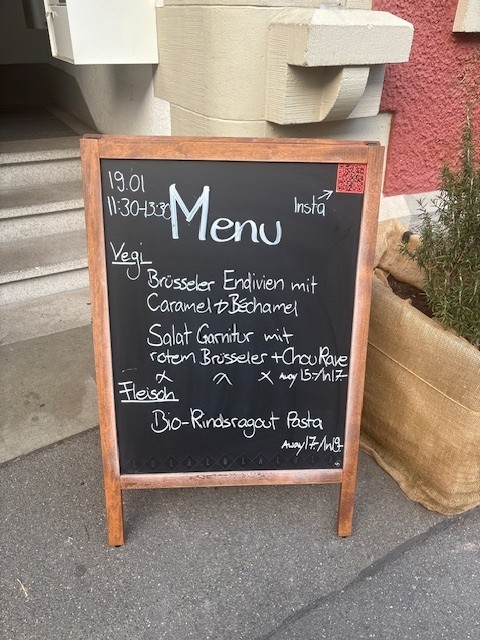 19.01
11:30-13:30
Menu
Insta
Vegi
Brüsseler Endivien mit
Caramel + Béchamel
Salat Garnitur mit
rotem Brüsseler + Chou Rave
Away 15.-/In 17.-
Fleisch
Bio-Rindsragout Pasta
Away 17.-/In 19.-